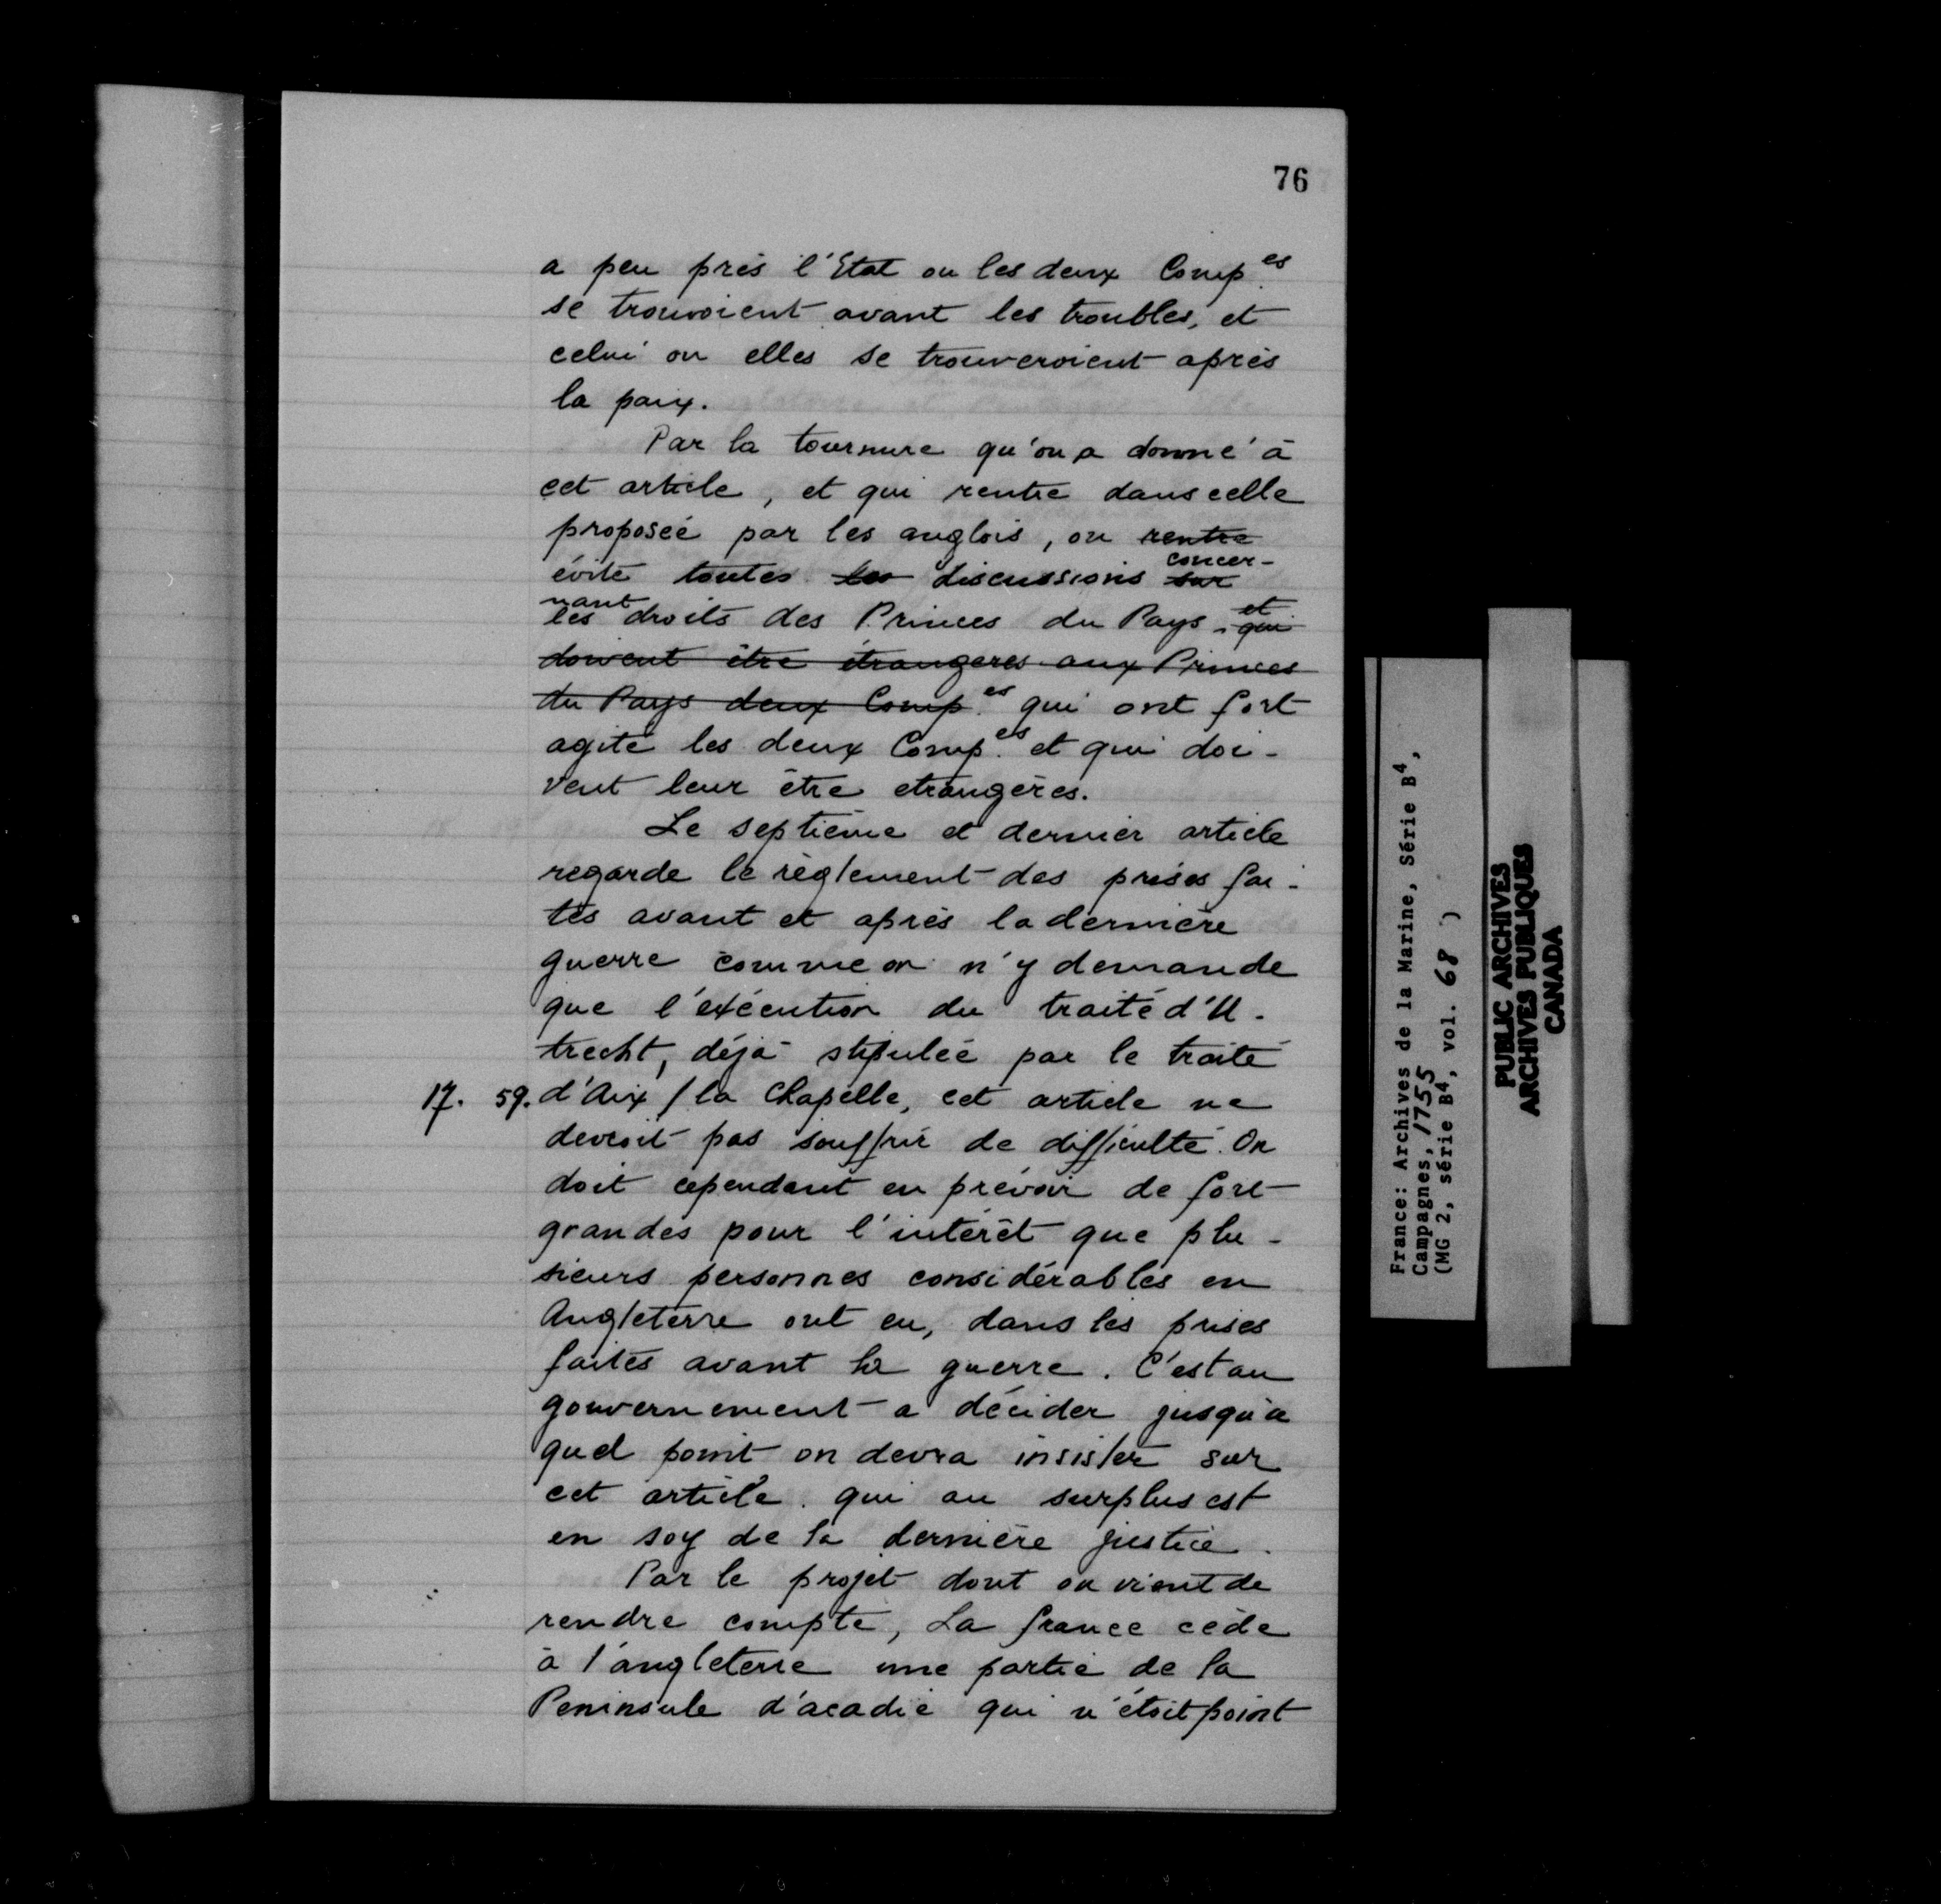 76
a peu près l'Etat ou les deux Comp.es
se trouvoient avant les troubles, et
celui ou elles se trouveroient après
la paix.
Par la tournure qu'on a donné à
cet article, et qui rentre dans celle
proposée par les anglois, on rentre
évite toutes les discussions sur concer-
nant les droits des Princes du Pays, qui et
doivent être étrangeres aux Princes
du Pays deux Comp.es qui ont fort
agité les deux Comp.es et qui doi-
vent leur être etrangères.
Le septième et dernier article
regarde le règlement des prises fai-
tes avant et après la dernière
guerre comme on n'y demande
que l'exécution du traité d'U-
trecht, déjà stipulée par le traité
17. 59. d'Aix / la Chapelle, cet article ne
devroit pas souffrir de difficulté. On
doit cependant en prévoir de fort
grandes pour l'intérêt que plu-
sieurs personnes considérables en
Angleterre ont eu, dans les prises
faites avant la guerre. C'est au
gouvernement a décider jusqu'a
quel point on devra insister sur
cet article. qui au surplus est
en soy de la dernière justice.
Par le projet dont on vient de
rendre compte, La france cède
à l'angleterre une partie de la
Peninsule d'acadie qui n'étoit point
France: Archives de la Marine, Série B4,
Campagnes, 1755
(MG 2, série B4, vol. 68 )
PUBLIC ARCHIVES
ARCHIVES PUBLIQUES
CANADA